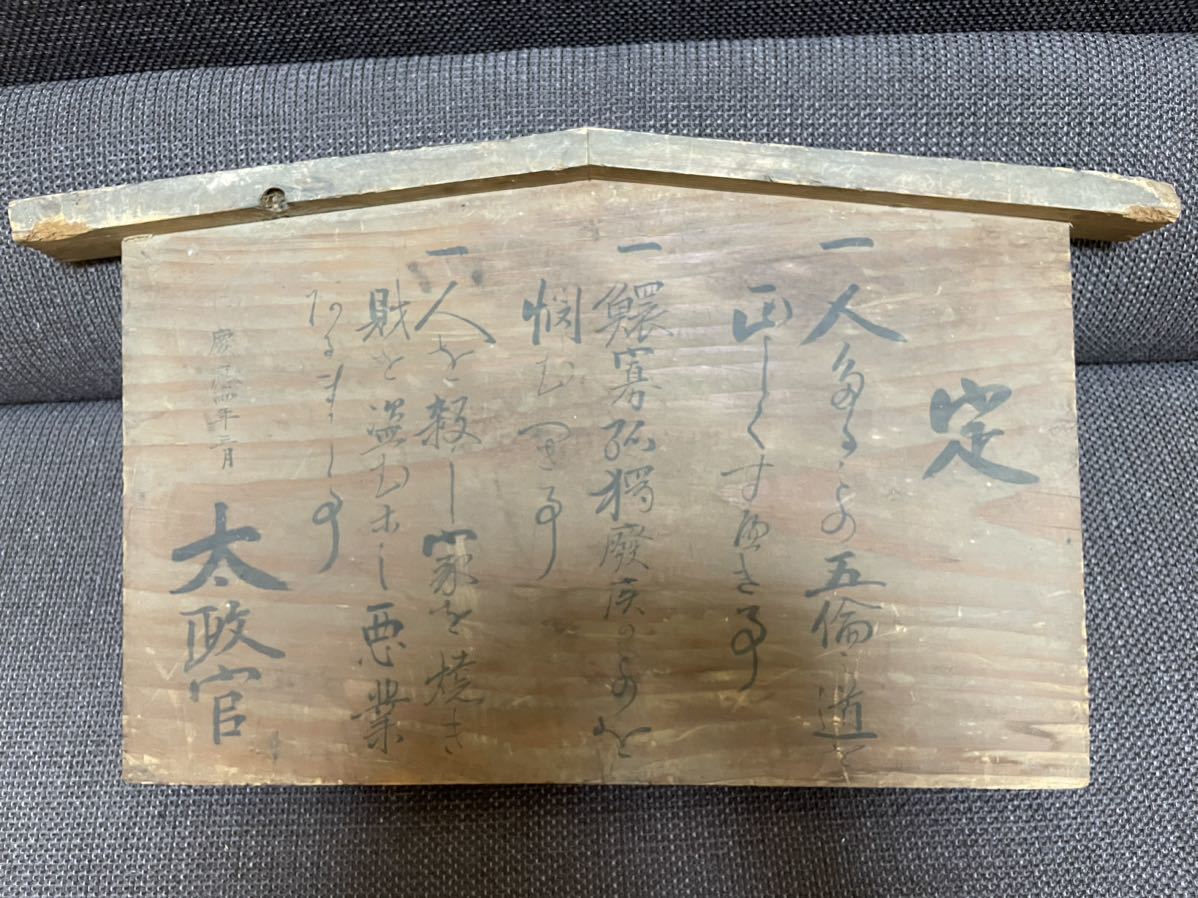 定
一人たるもの五倫之道を
正しくすへき事
一鰥寡孤獨廢疾のものを
憫むへき事
一人を殺し家を焼き
財を盗む等之悪業
あるましく事
慶應四年三月
太政官